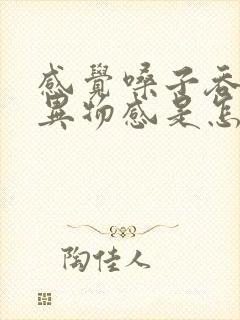 感覺嗓子吞
異物感是怎
陶佳人